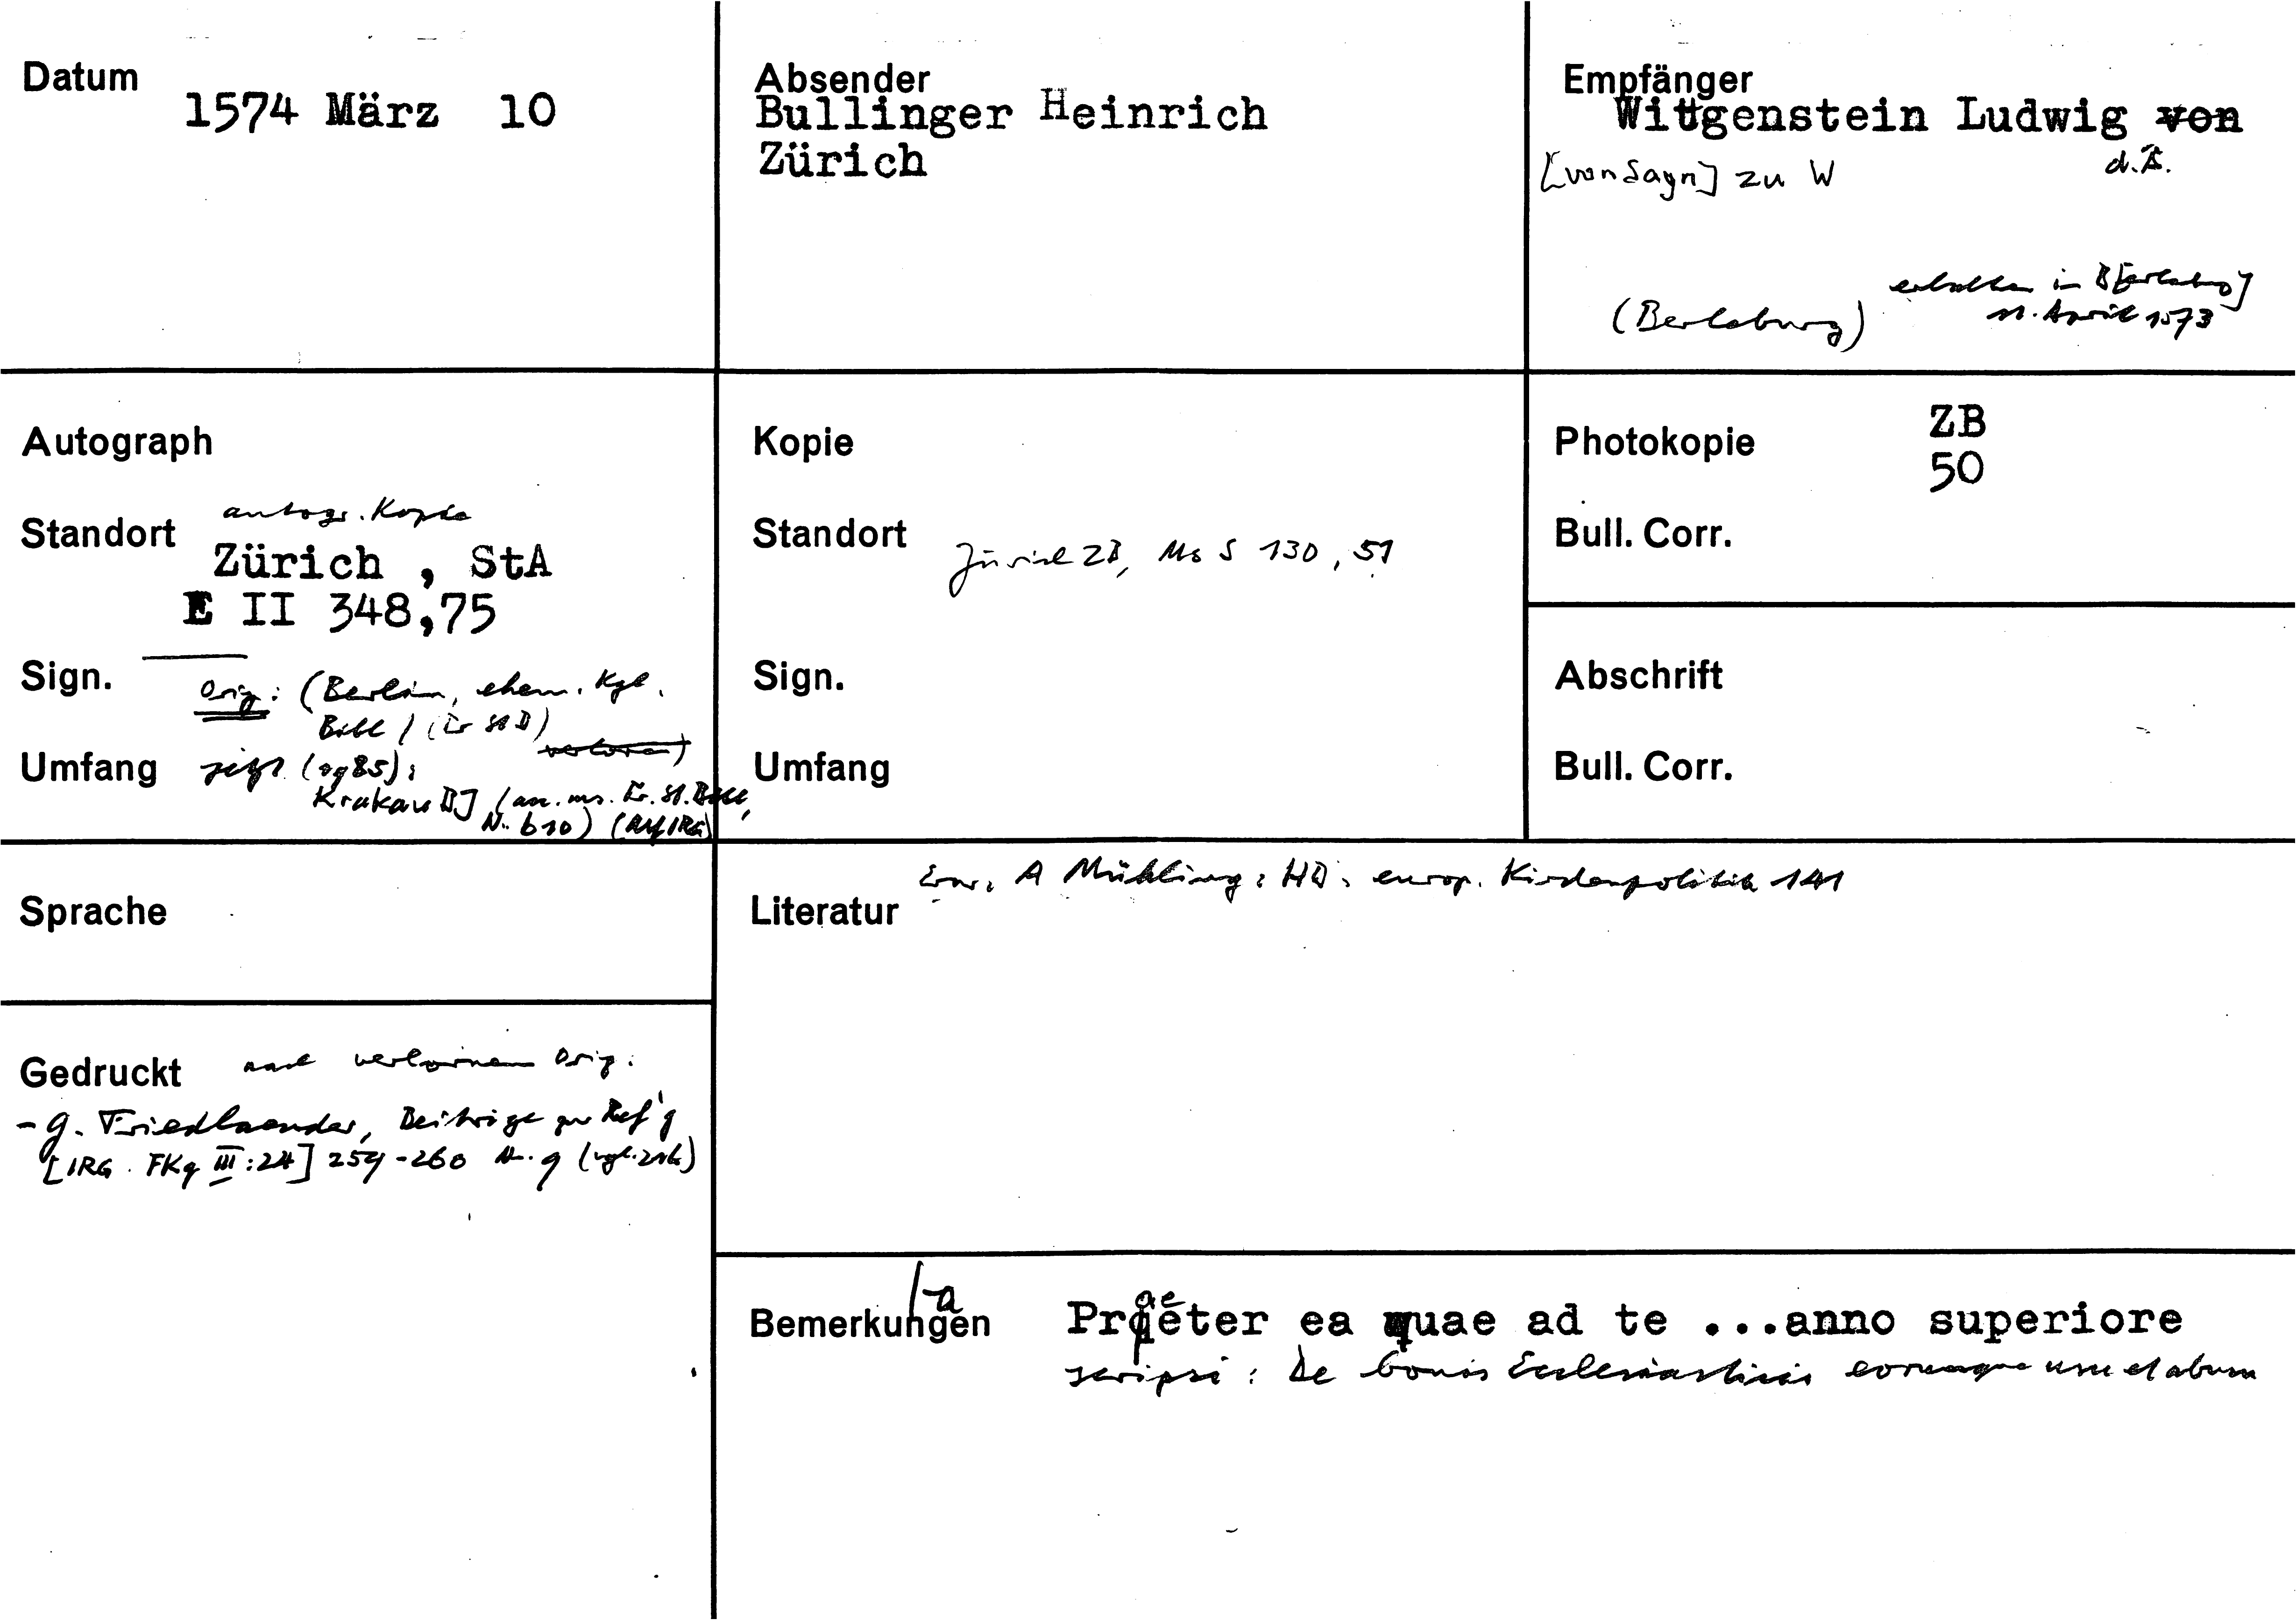 Datum
1574 März 10
Absender
Bullinger Heinrich
Zürich
Empfänger
Wittgenstein Ludwig von
[von Sayn] zu W d.Ä.
erhalten in B[erleburg]
(Berleburg) 11. April 1573
Autograph
autogr. Kopie
Standort
Zürich , StA
E II 348,75
Sign.
Orig: (Berlin, ehem. Kgl.
Bibl
verloren)
Umfang jetzt (og85):
Krakau BJ (an. ms.
Nr. 610) (RGf IRG)
Kopie
Standort Zürich ZB, Ms S 130, 51
Sign.
Umfang
Photokopie ZB
50
Bull. Corr.
Abschrift
Bull. Corr.
Sprache
Erw. A Mühling: HB's europ. Kirchenpolitik 141
Literatur
Gedruckt nach verlornem Orig.
- G. Friedlaender, Beiträge zur Ref'g
[IRG. FKg III:24] 259-260 Nr. 9
Bemerkungen Praeter ea quae ad te ...anno superiore
scripsi: De bonis Ecclesiasticis eorumque usu et abusu